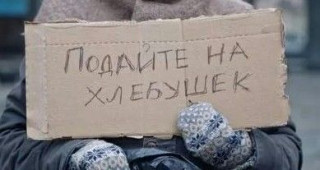 ПОДАЙТЕ НА
ХЛЕБУШЕК